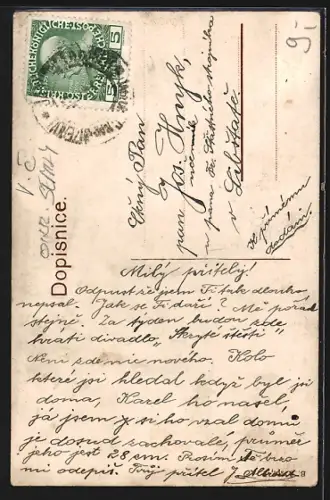 9-
5
5
Dopisnice.
Ctěný Pan
pan Jos. Knyk,
učenník
u pana
v Libštatě.
K příjemnému
dodání.
Milý příteli!
Odpusť že jsem Ti tak dlouho
nepsal. Jak se Ti daří? Mě pořád
stejně. Za týden budou zde
hráti divadlo „Skryté štěstí"
Není zde nic nového. Kolo
které jsi hledal když byl jsi
doma, Karel ho našel,
já jsem si ho vzal domů
je dosud zachovalé, průměr
jeho jest 28 cm. Prosím Tě brzo
mi odepiš. Tvůj přítel J.